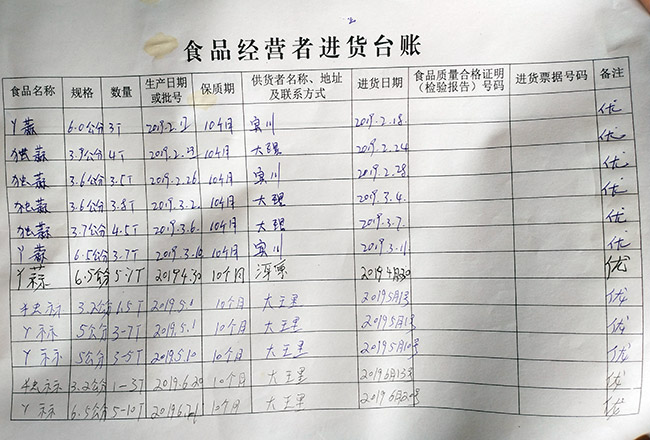 食品经营者进货台账
食品名称 规格 数量 生产日期或批号 保质期 供货者名称、地址及联系方式 进货日期 食品质量合格证明（检验报告）号码 进货票据号码 备注
丫蒜 6.0公分 3T 2019.2.17 10个月 宾川 2019.2.18. 优
独蒜 3.9公分 4T 2019.2.23 10个月 大理 2019.2.24 优
独蒜 3.6公分 3.5T 2019.2.26 10个月 宾川 2019.2.28 优
独蒜 3.6公分 3.8T 2019.3.2. 10个月 大理 2019.3.4. 优
独蒜 3.7公分 4.5T 2019.3.6. 10个月 大理 2019.3.7. 优
丫蒜 6.5公分 3.7T 2019.3.10 10个月 宾川 2019.3.11. 优
丫蒜 6.5公分 5-7T 2019.4.30 10个月 洱源 2019 4月30 优
独蒜 3.2公分 1.5T 2019.5.1 10个月 大王里 2019 5月1号 优
丫蒜 5公分 3-7T 2019.5.1 10个月 大王里 2019 5月1号 优
丫蒜 5公分 3-5T 2019.5.10 10个月 大王里 2019 5月10号 优
独蒜 3.2公分 1-3T 2019.6.20 10个月 大王里 2019 6月13号 优
丫蒜 6.5公分 5-10T 10个月 大王里 2019 6月20号 优